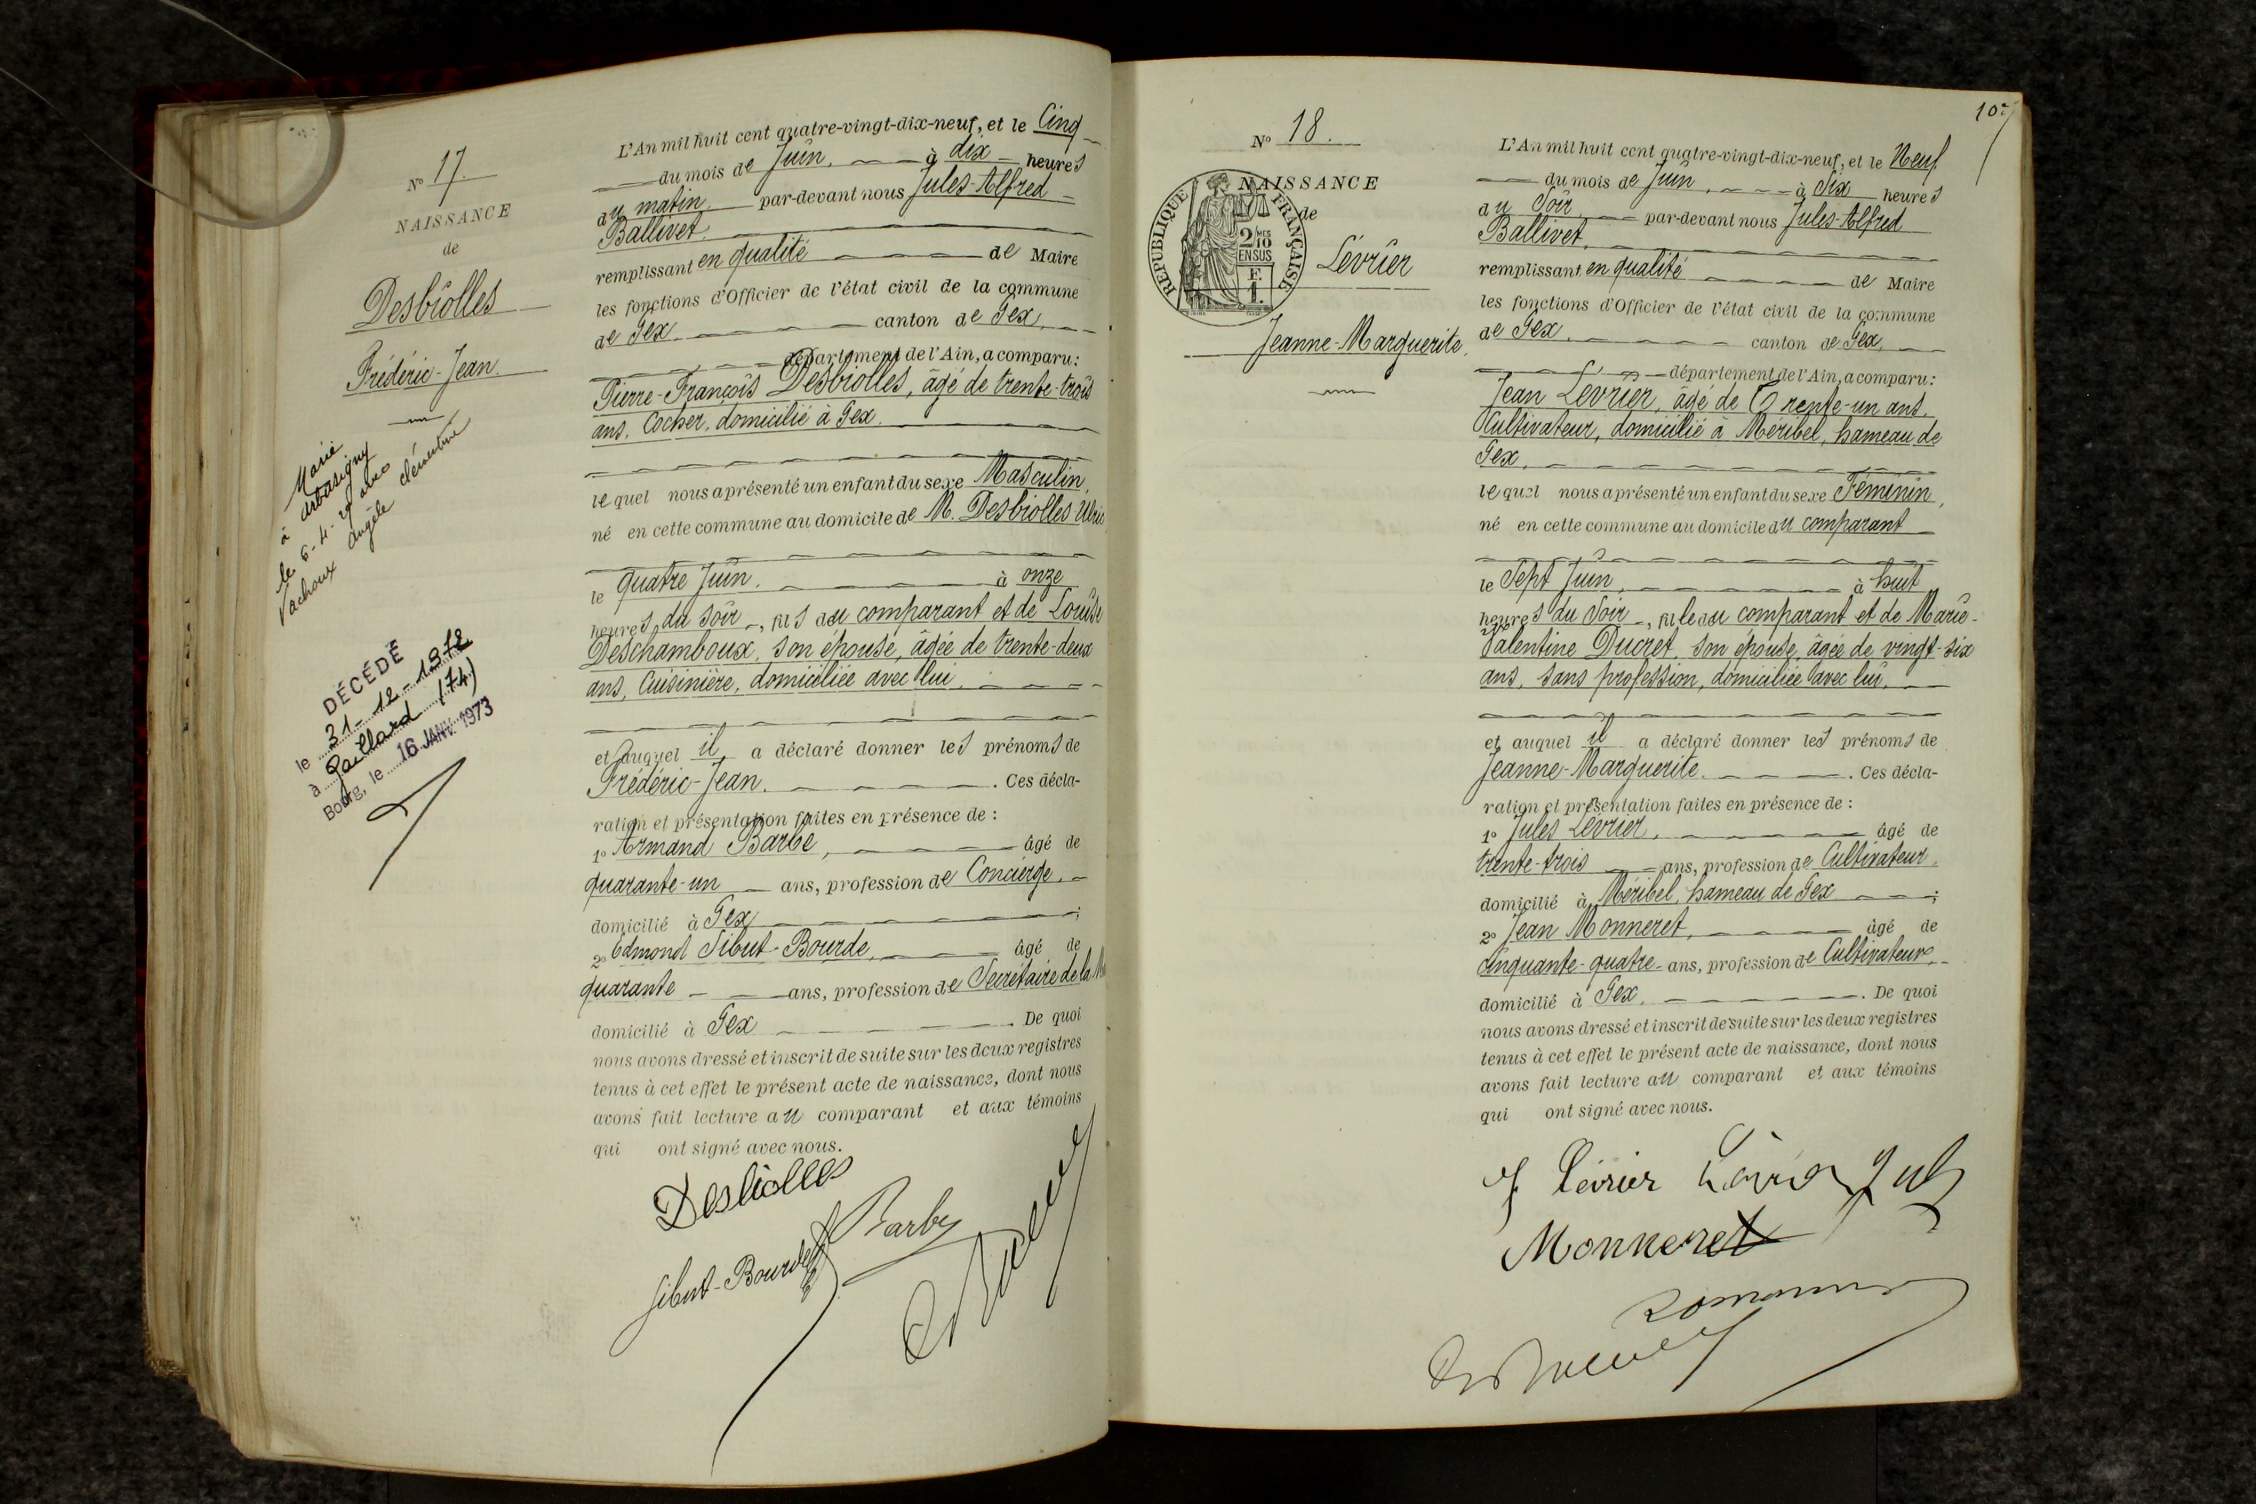 N° 17.
NAISSANCE
de
Desbiolles
Frédéric-Jean
Marié
à Arthasigny
le 6-4-29 avec
Vachoux Angèle Clémentine
DÉCÉDÉ
le 31-12-1972
à Gaillard (74)
Bourg, le 16 JANV. 1973
L'An mil huit cent quatre-vingt-dix-neuf, et le Cinq
du mois de Juin, à dix heures
du matin par-devant nous Jules-Alfred
Ballivet
remplissant en qualité de Maire
les fonctions d'Officier de l'état civil de la commune
de Gex canton de Gex,
département de l'Ain, a comparu:
Pierre-François Desbiolles, âgé de trente-trois
ans, Cocher, domicilié à Gex.
lequel nous a présenté un enfant du sexe Masculin,
né en cette commune au domicile de M. Desbiolles Ulric
le quatre Juin. à onze
heures du soir, fils du comparant et de Louise
Deschamboux, son épouse, âgée de trente-deux
ans, Cuisinière, domiciliée avec lui.
et auquel il a déclaré donner les prénoms de
Frédéric-Jean. Ces décla-
ration et présentation faites en présence de :
1° Armand Barbe, âgé de
quarante-un ans, profession de Concierge,
domicilié à Gex ;
2° Edmond Sibut-Bourde, âgé de
quarante ans, profession de Secrétaire de la
domicilié à Gex . De quoi
nous avons dressé et inscrit de suite sur les deux registres
tenus à cet effet le présent acte de naissance, dont nous
avons fait lecture au comparant et aux témoins
qui ont signé avec nous.
Desbiolles
Sibut-Bourde Barbe
107
N° 18.
NAISSANCE
de
RÉPUBLIQUE FRANÇAISE
2/10 MES
EN SUS
F.
1.
Lévrier
Jeanne-Marguerite.
L'An mil huit cent quatre-vingt-dix-neuf, et le Neuf
du mois de Juin, à Six heures
du Soir, par-devant nous Jules-Alfred
Ballivet,
remplissant en qualité de Maire
les fonctions d'Officier de l'état civil de la commune
de Gex, canton de Gex,
département de l'Ain, a comparu:
Jean Lévrier, âgé de Trente-un ans,
Cultivateur, domicilié à Méribel, hameau de
Gex,
lequel nous a présenté un enfant du sexe Féminin,
né en cette commune au domicile du comparant
le Sept Juin, à huit
heures du Soir, fille du comparant et de Marie-
Valentine Ducret, son épouse, âgée de vingt-six
ans, sans profession, domiciliée avec lui,
et auquel il a déclaré donner les prénoms de
Jeanne-Marguerite. Ces décla-
ration et présentation faites en présence de :
1° Jules Lévrier, âgé de
trente-trois ans, profession de Cultivateur,
domicilié à Méribel, hameau de Gex ;
2° Jean Monneret, âgé de
cinquante-quatre ans, profession de Cultivateur,
domicilié à Gex, . De quoi
nous avons dressé et inscrit de suite sur les deux registres
tenus à cet effet le présent acte de naissance, dont nous
avons fait lecture au comparant et aux témoins
qui ont signé avec nous.
J Lévrier Lévrier Jules
Monneret